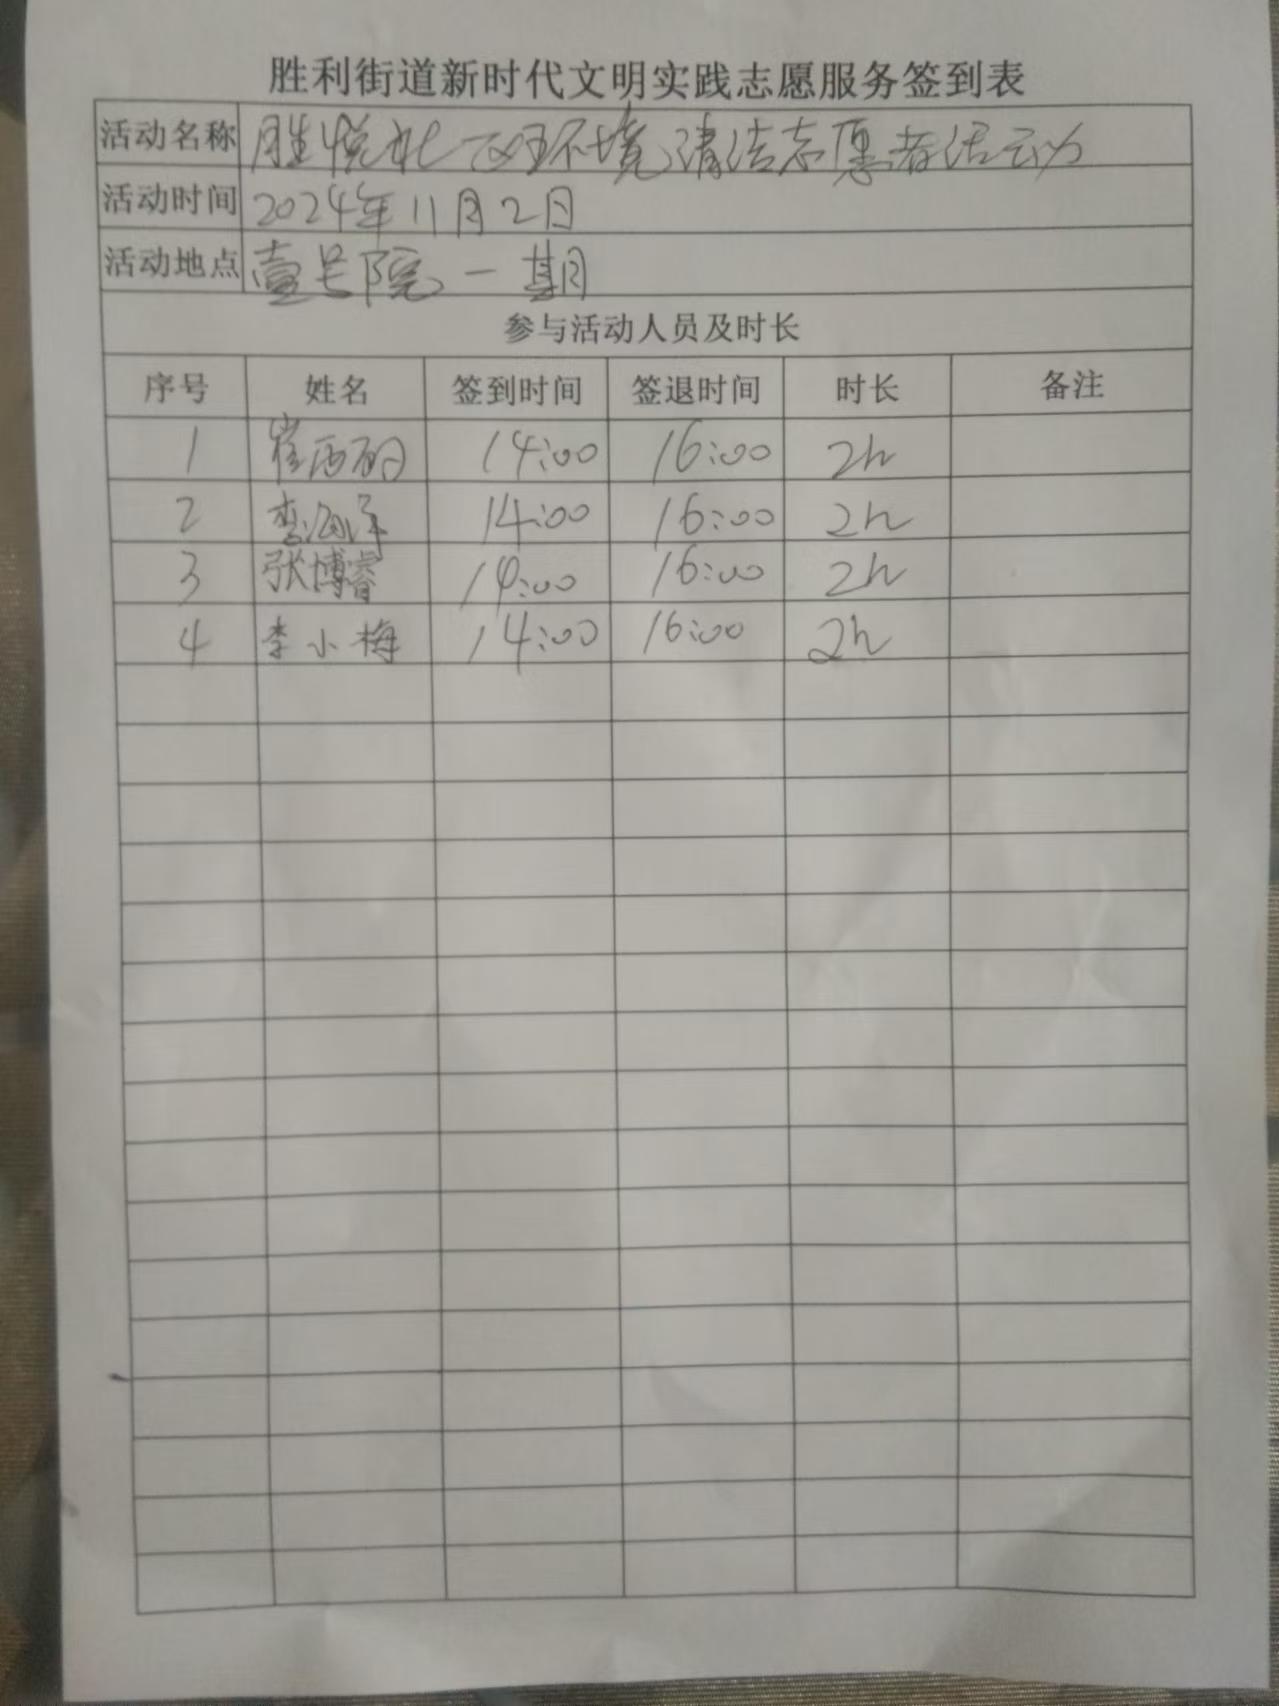 胜利街道新时代文明实践志愿服务签到表
活动名称 胜悦社区环境清洁志愿者活动
活动时间 2024年11月2日
活动地点 壹号院一期
参与活动人员及时长
序号 姓名 签到时间 签退时间 时长 备注
1 崔西 14:00 16:00 2h
2 李海洋 14:00 16:00 2h
3 张博睿 14:00 16:00 2h
4 李小梅 14:00 16:00 2h